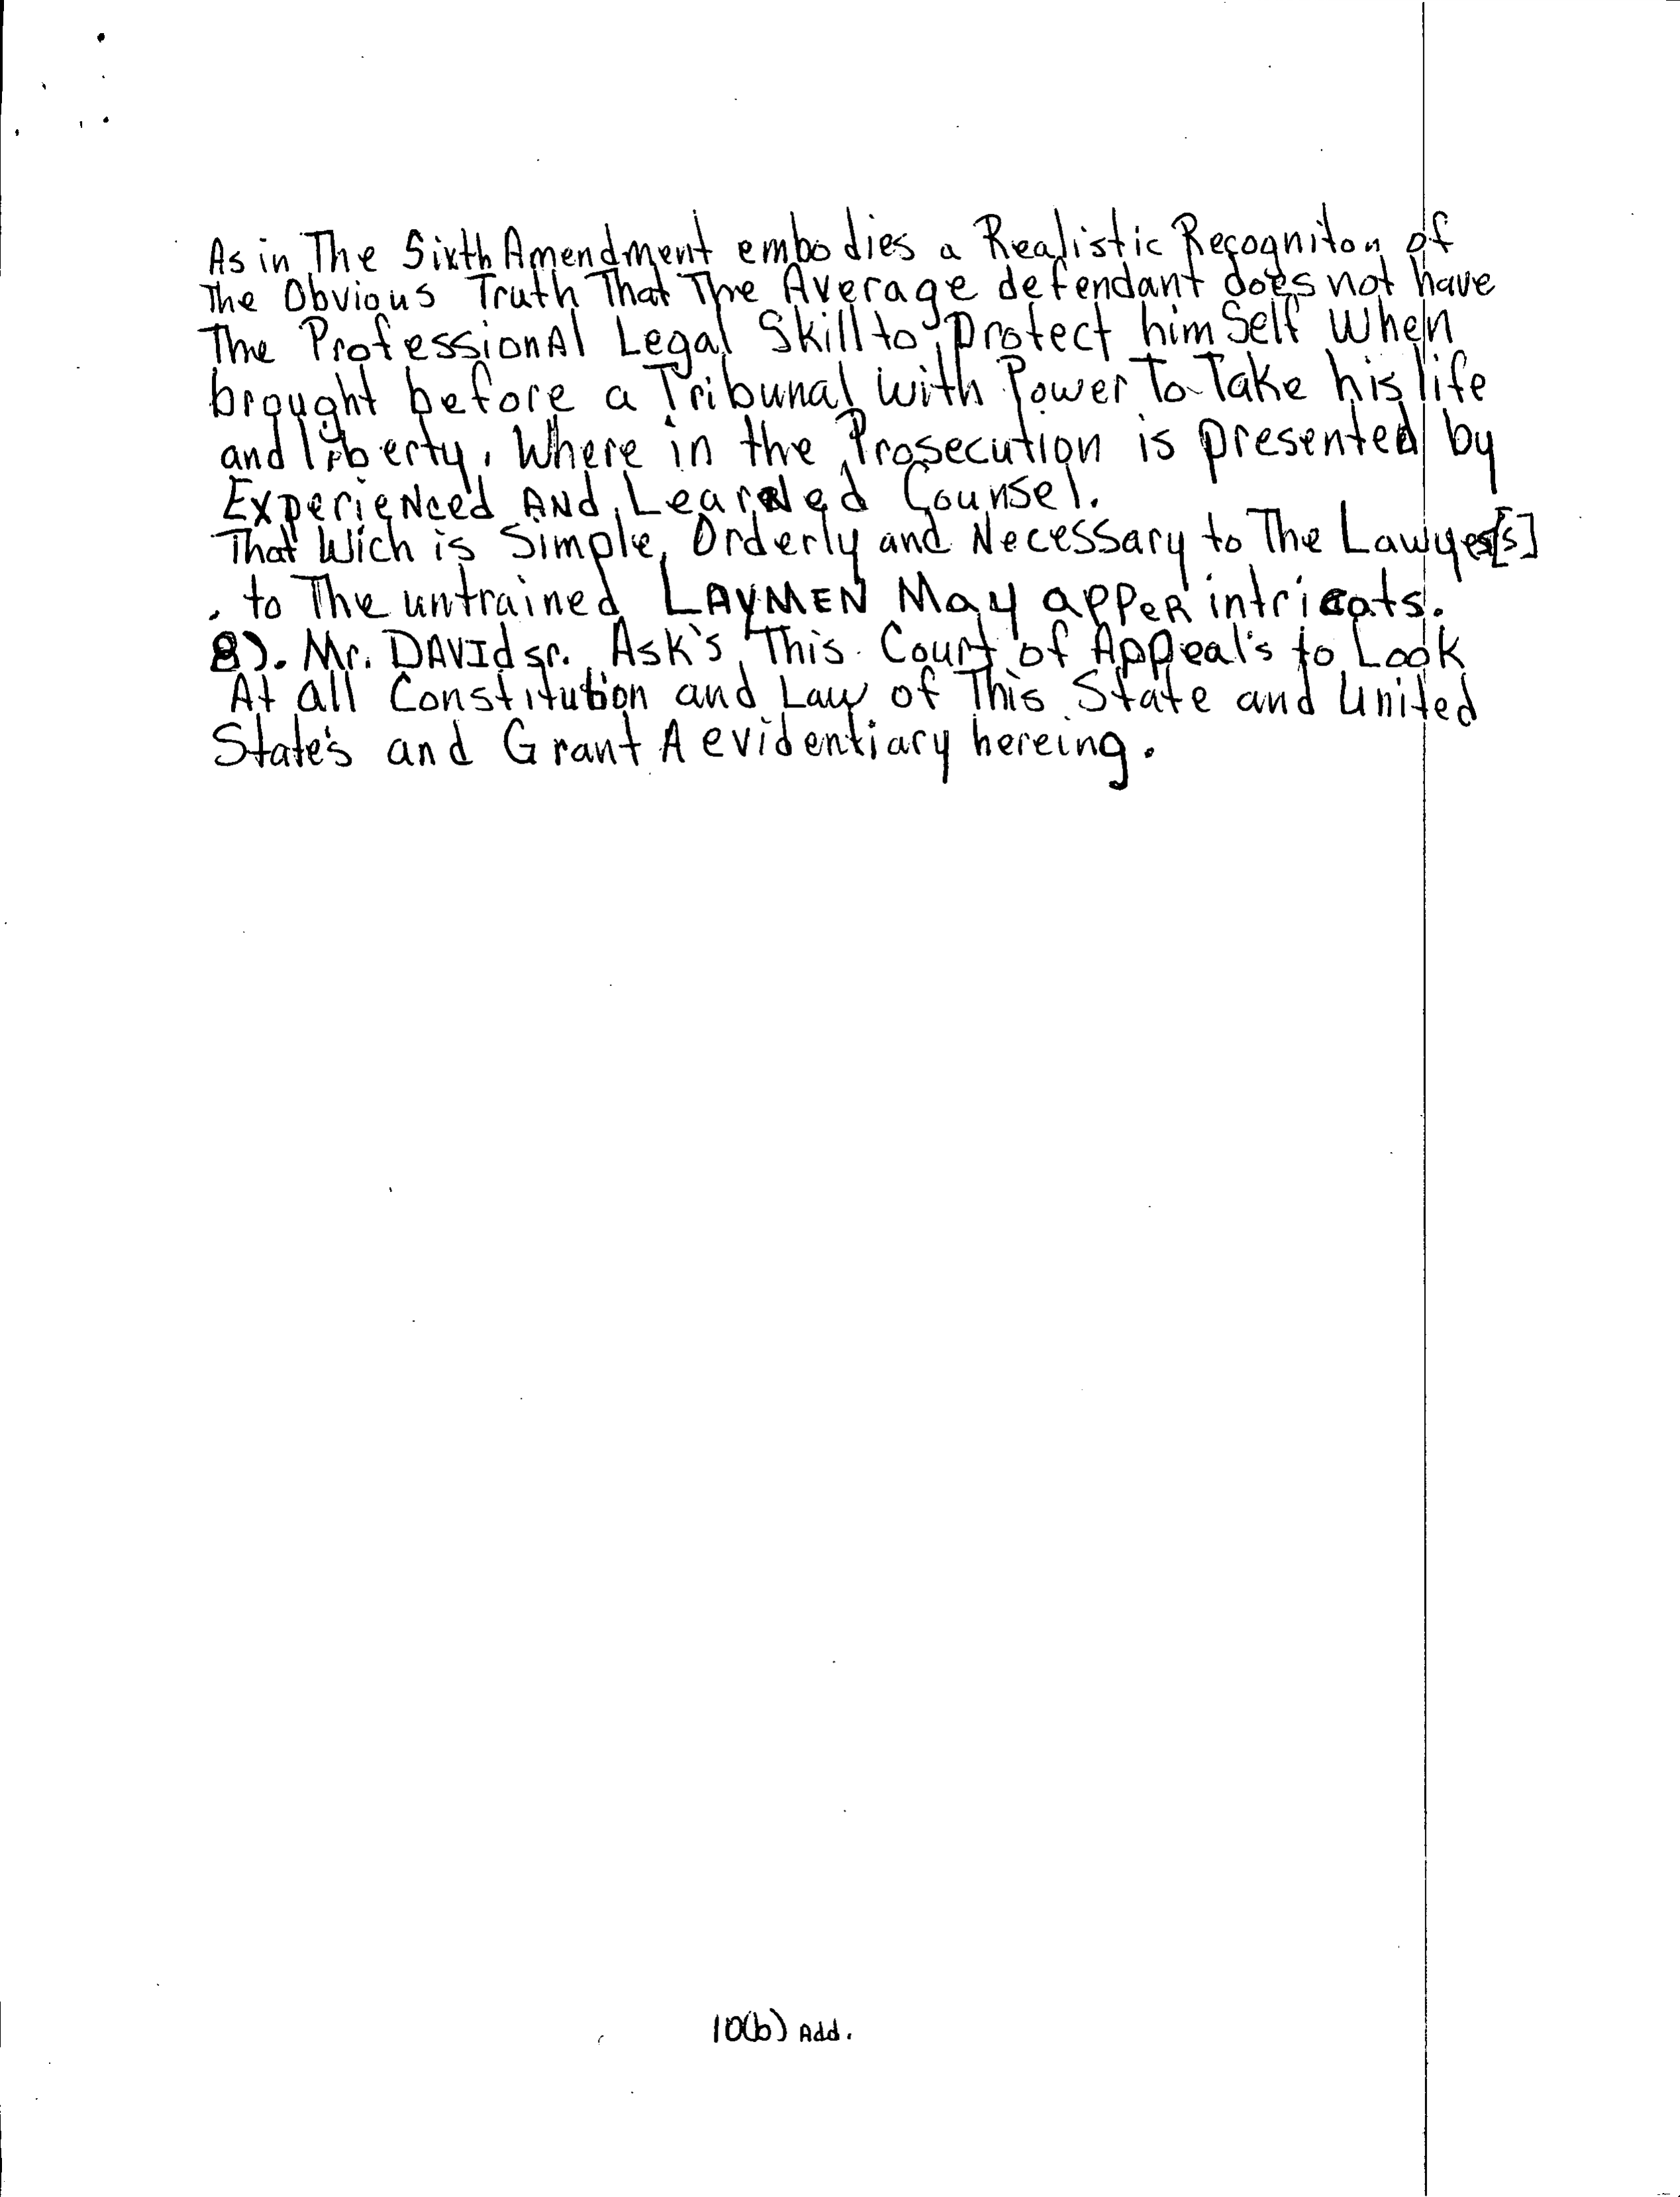 As in The Sixth Amendment embodies a Realistic Recogniton of
The Obvious Truth That The Average defendant does not have
The Professional Legal Skill to Protect him Self When
brought before a Tribunal with Power To Take his life
and liberty, Where in the Prosecution is presented by
Experienced AND Learned Counsel.
That Wich is Simple, Orderly and Necessary to The Lawyes[s]
, to The untrained LAYMEN May apper intricats.
8). Mr. DAVID sr. Ask's This Court of Appeal's to Look
At all Constitution and Law of This State and United
State's and Grant A evidentiary hereing.
10(b) Add.